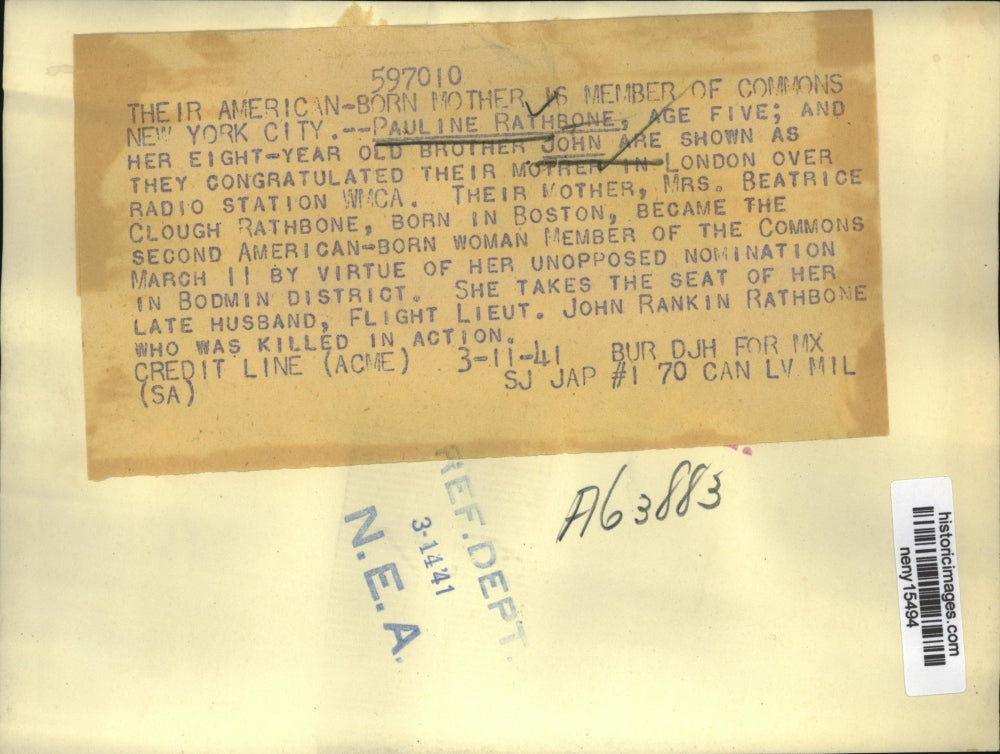 597010
THEIR AMERICAN-BORN MOTHER IS MEMBER OF COMMONS
NEW YORK CITY.--PAULINE RATHBONE, AGE FIVE; AND
HER EIGHT-YEAR OLD BROTHER JOHN ARE SHOWN AS
THEY CONGRATULATED THEIR MOTHER IN LONDON OVER
RADIO STATION WMCA. THEIR MOTHER, MRS. BEATRICE
CLOUGH RATHBONE, BORN IN BOSTON, BECAME THE
SECOND AMERICAN-BORN WOMAN MEMBER OF THE COMMONS
MARCH 11 BY VIRTUE OF HER UNOPPOSED NOMINATION
IN BODMIN DISTRICT. SHE TAKES THE SEAT OF HER
LATE HUSBAND, FLIGHT LIEUT. JOHN RANKIN RATHBONE
WHO WAS KILLED IN ACTION.
CREDIT LINE (ACME) 3-11-41 BUR DJH FOR MX
(SA) SJ JAP #1 70 CAN LV MIL
REF. DEPT.
3-14'41
N.E.A.
A63883
historicimages.com
neny15494